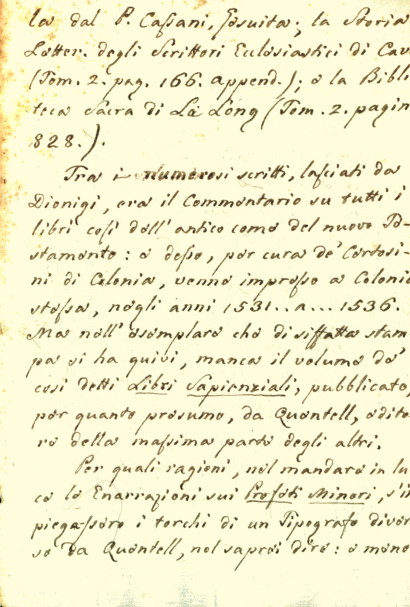 la dal P. Cassani, Gesuita; la Storia
Letter. degli Scrittori Eclesiastici di Cav
(Tom. 2. pag. 166. append.); e la Bibli
teca Sacra di Le Long (Tom. 2. pagin
828.).
Tra i numerosi scritti, lasciati da
Dionigi, era il Commentario su tutti i
libri così dell' antico come del nuovo Te-
stamento: e desso, per cura de' Certosi-
ni di Colonia, venne impresso a Colonia
stessa, negli anni 1531.. a... 1536.
Ma nell' esemplare che di siffatta stam-
pa si ha quivi, manca il volume de'
così detti Libri Sapienziali, pubblicato,
per quanto presumo, da Quentell, edito-
re della massima parte degli altri.
Per quali ragioni, nel mandare in lu
ce le Enarrazioni sui Profeti Minori, s'im
piegassero i torchi di un Tipografo diver
so da Quentell, nol saprei dire: e meno